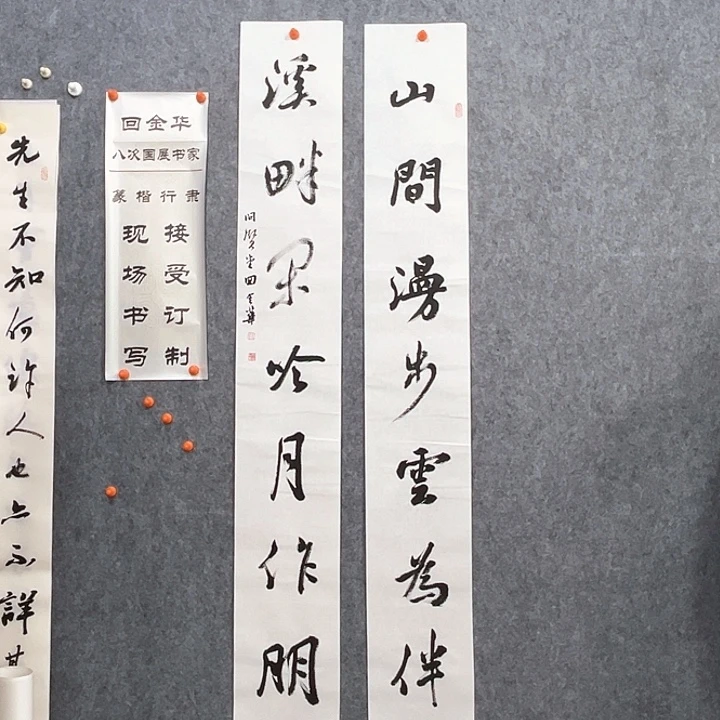 山間漫步雲為伴
溪畔閑吟月作朋
問賢堂回金華
回金华
八次国展书家
篆楷行隶
现场书写
接受订制
先生不知何許人也亦不詳其